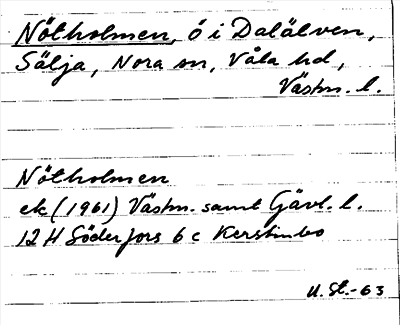 Nötholmen, ö i Dalälven,
Sälja, Nora sn, Våla hd,
Västm. l.
Nötholmen
ek (1961) Västm. samt Gävl. l.
12 H Söderfors 6 c Kerstinbo
U. St. -63